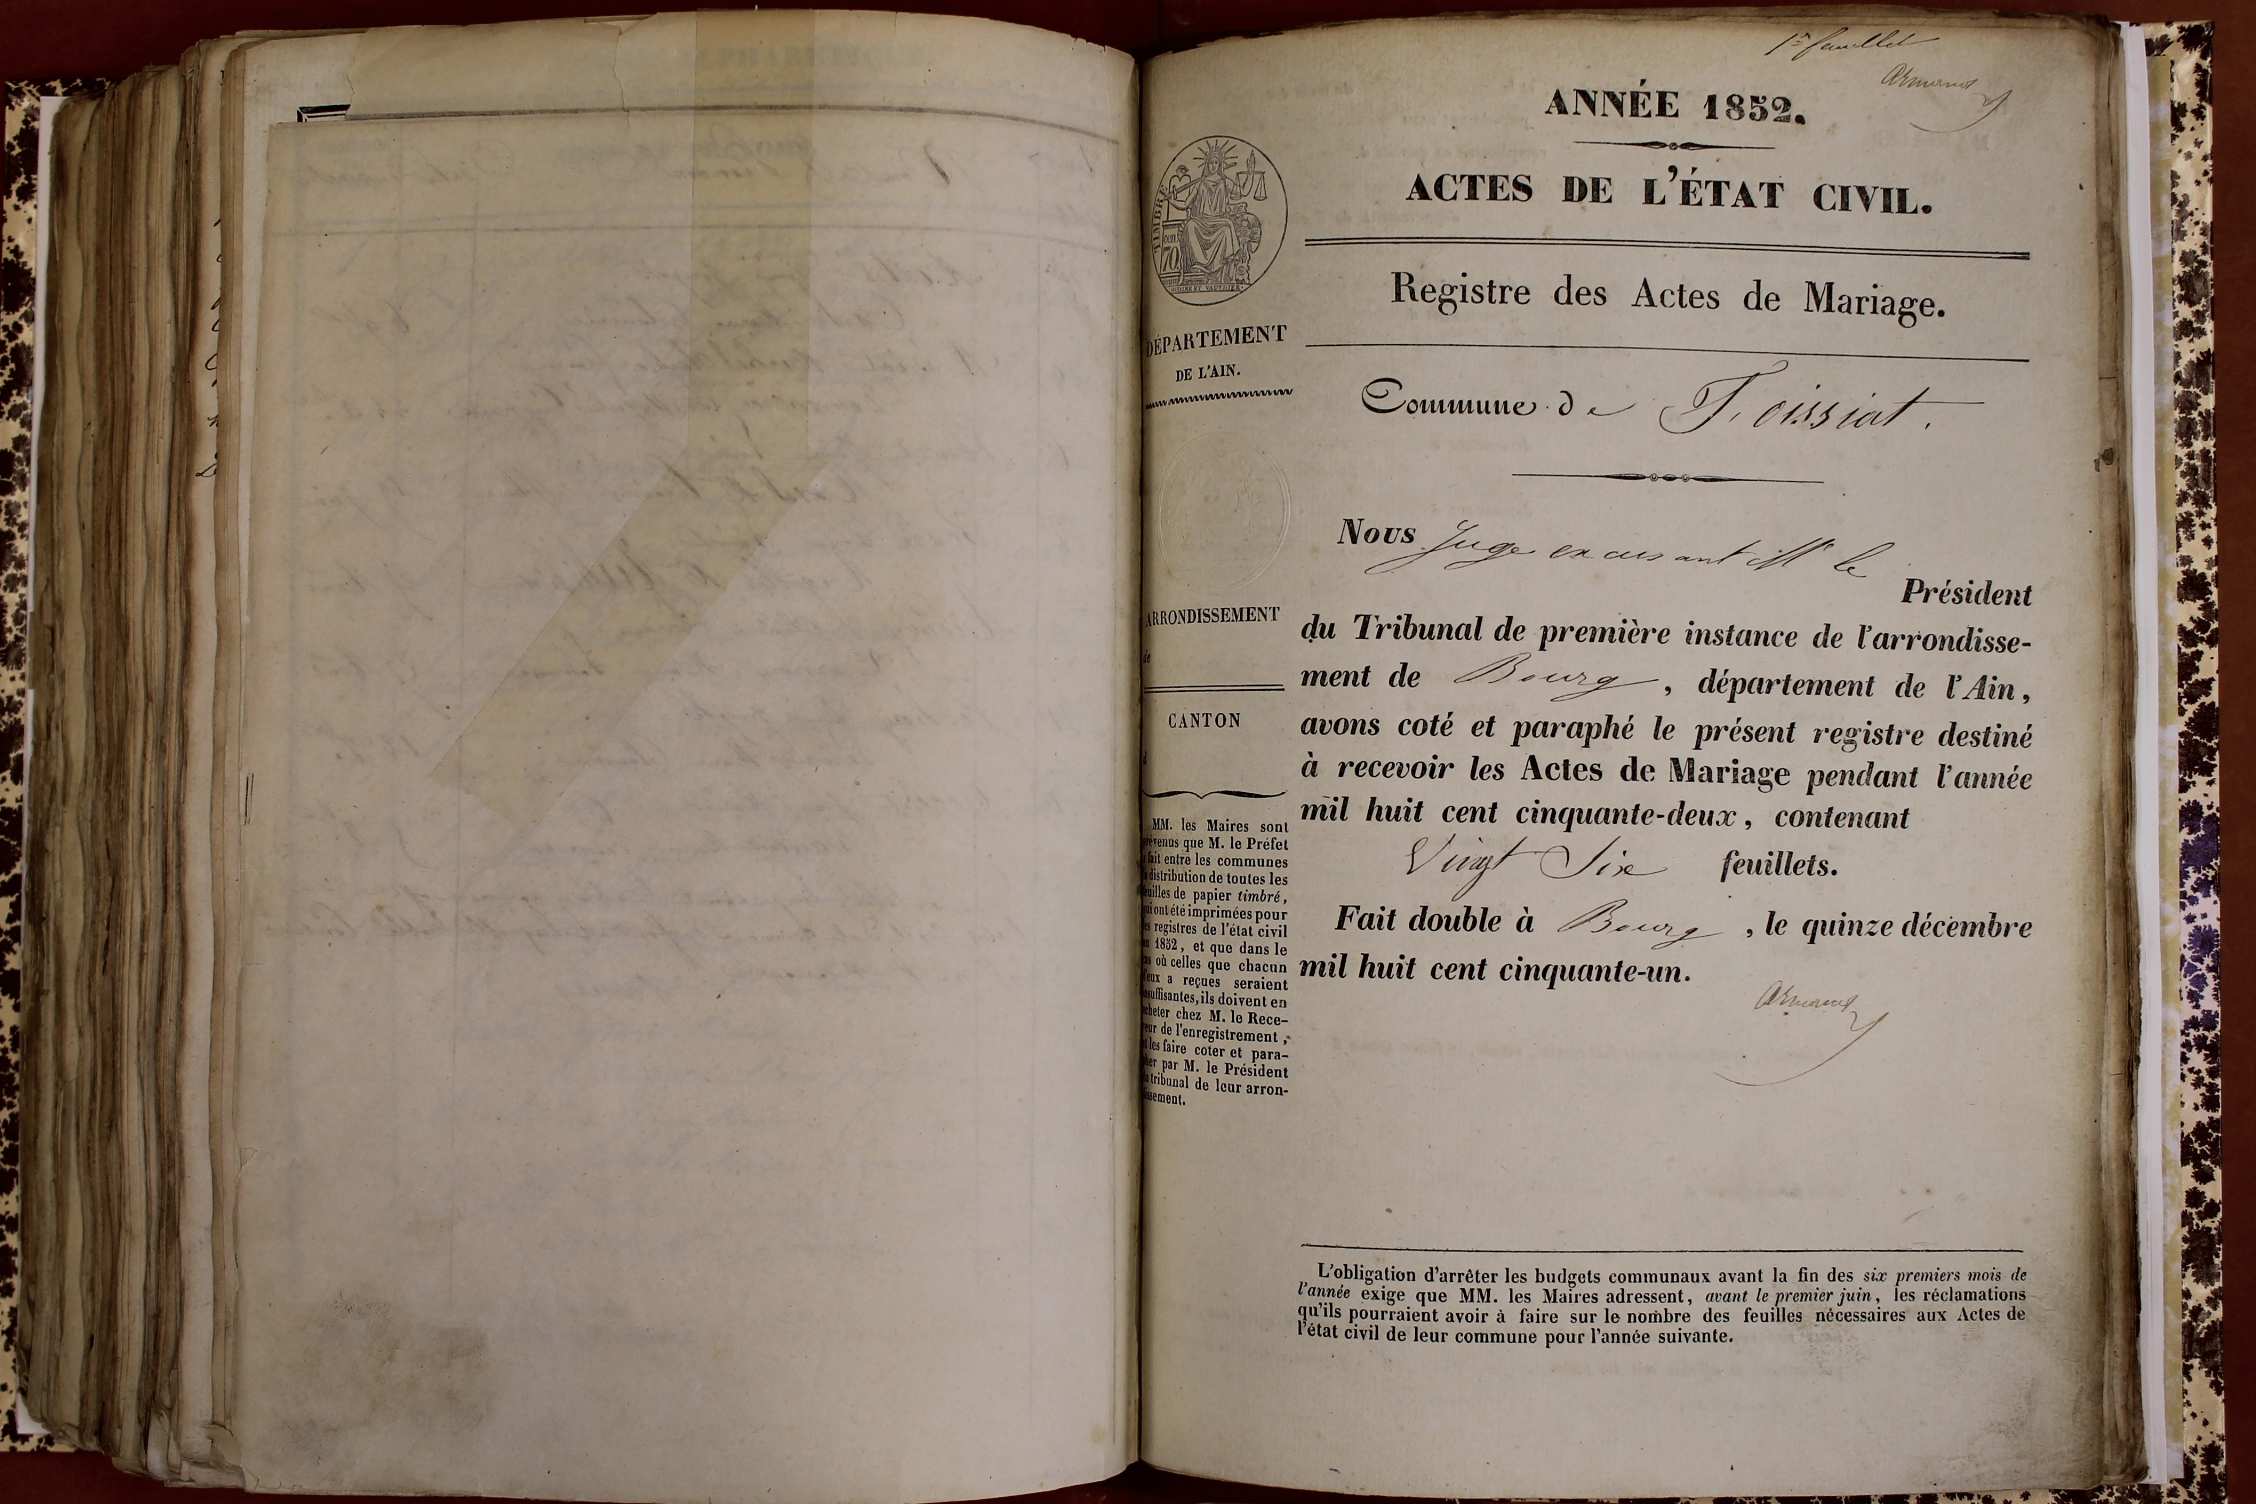 1er feuillet
Armand
ANNÉE 1852.
ACTES DE L'ÉTAT CIVIL.
TIMBRE
70
Registre des Actes de Mariage.
DÉPARTEMENT
DE L'AIN.
Commune de Foissiat.
Nous Juge excusant Mr le
Président
du Tribunal de première instance de l'arrondisse-
ment de Bourg, département de l'Ain,
avons coté et paraphé le présent registre destiné
à recevoir les Actes de Mariage pendant l'année
mil huit cent cinquante-deux, contenant
Vingt Six feuillets.
Fait double à Bourg, le quinze décembre
mil huit cent cinquante-un.
Armand
ARRONDISSEMENT
de
CANTON
d
MM. les Maires sont
prévenus que M. le Préfet
a fait entre les communes
la distribution de toutes les
feuilles de papier timbré,
qui ont été imprimées pour
les registres de l'état civil
en 1852, et que dans le
cas où celles que chacun
d'eux a reçues seraient
insuffisantes, ils doivent en
acheter chez M. le Rece-
veur de l'enregistrement,
et les faire coter et para-
pher par M. le Président
du tribunal de leur arron-
dissement.
L'obligation d'arrêter les budgets communaux avant la fin des six premiers mois de
l'année exige que MM. les Maires adressent, avant le premier juin, les réclamations
qu'ils pourraient avoir à faire sur le nombre des feuilles nécessaires aux Actes de
l'état civil de leur commune pour l'année suivante.